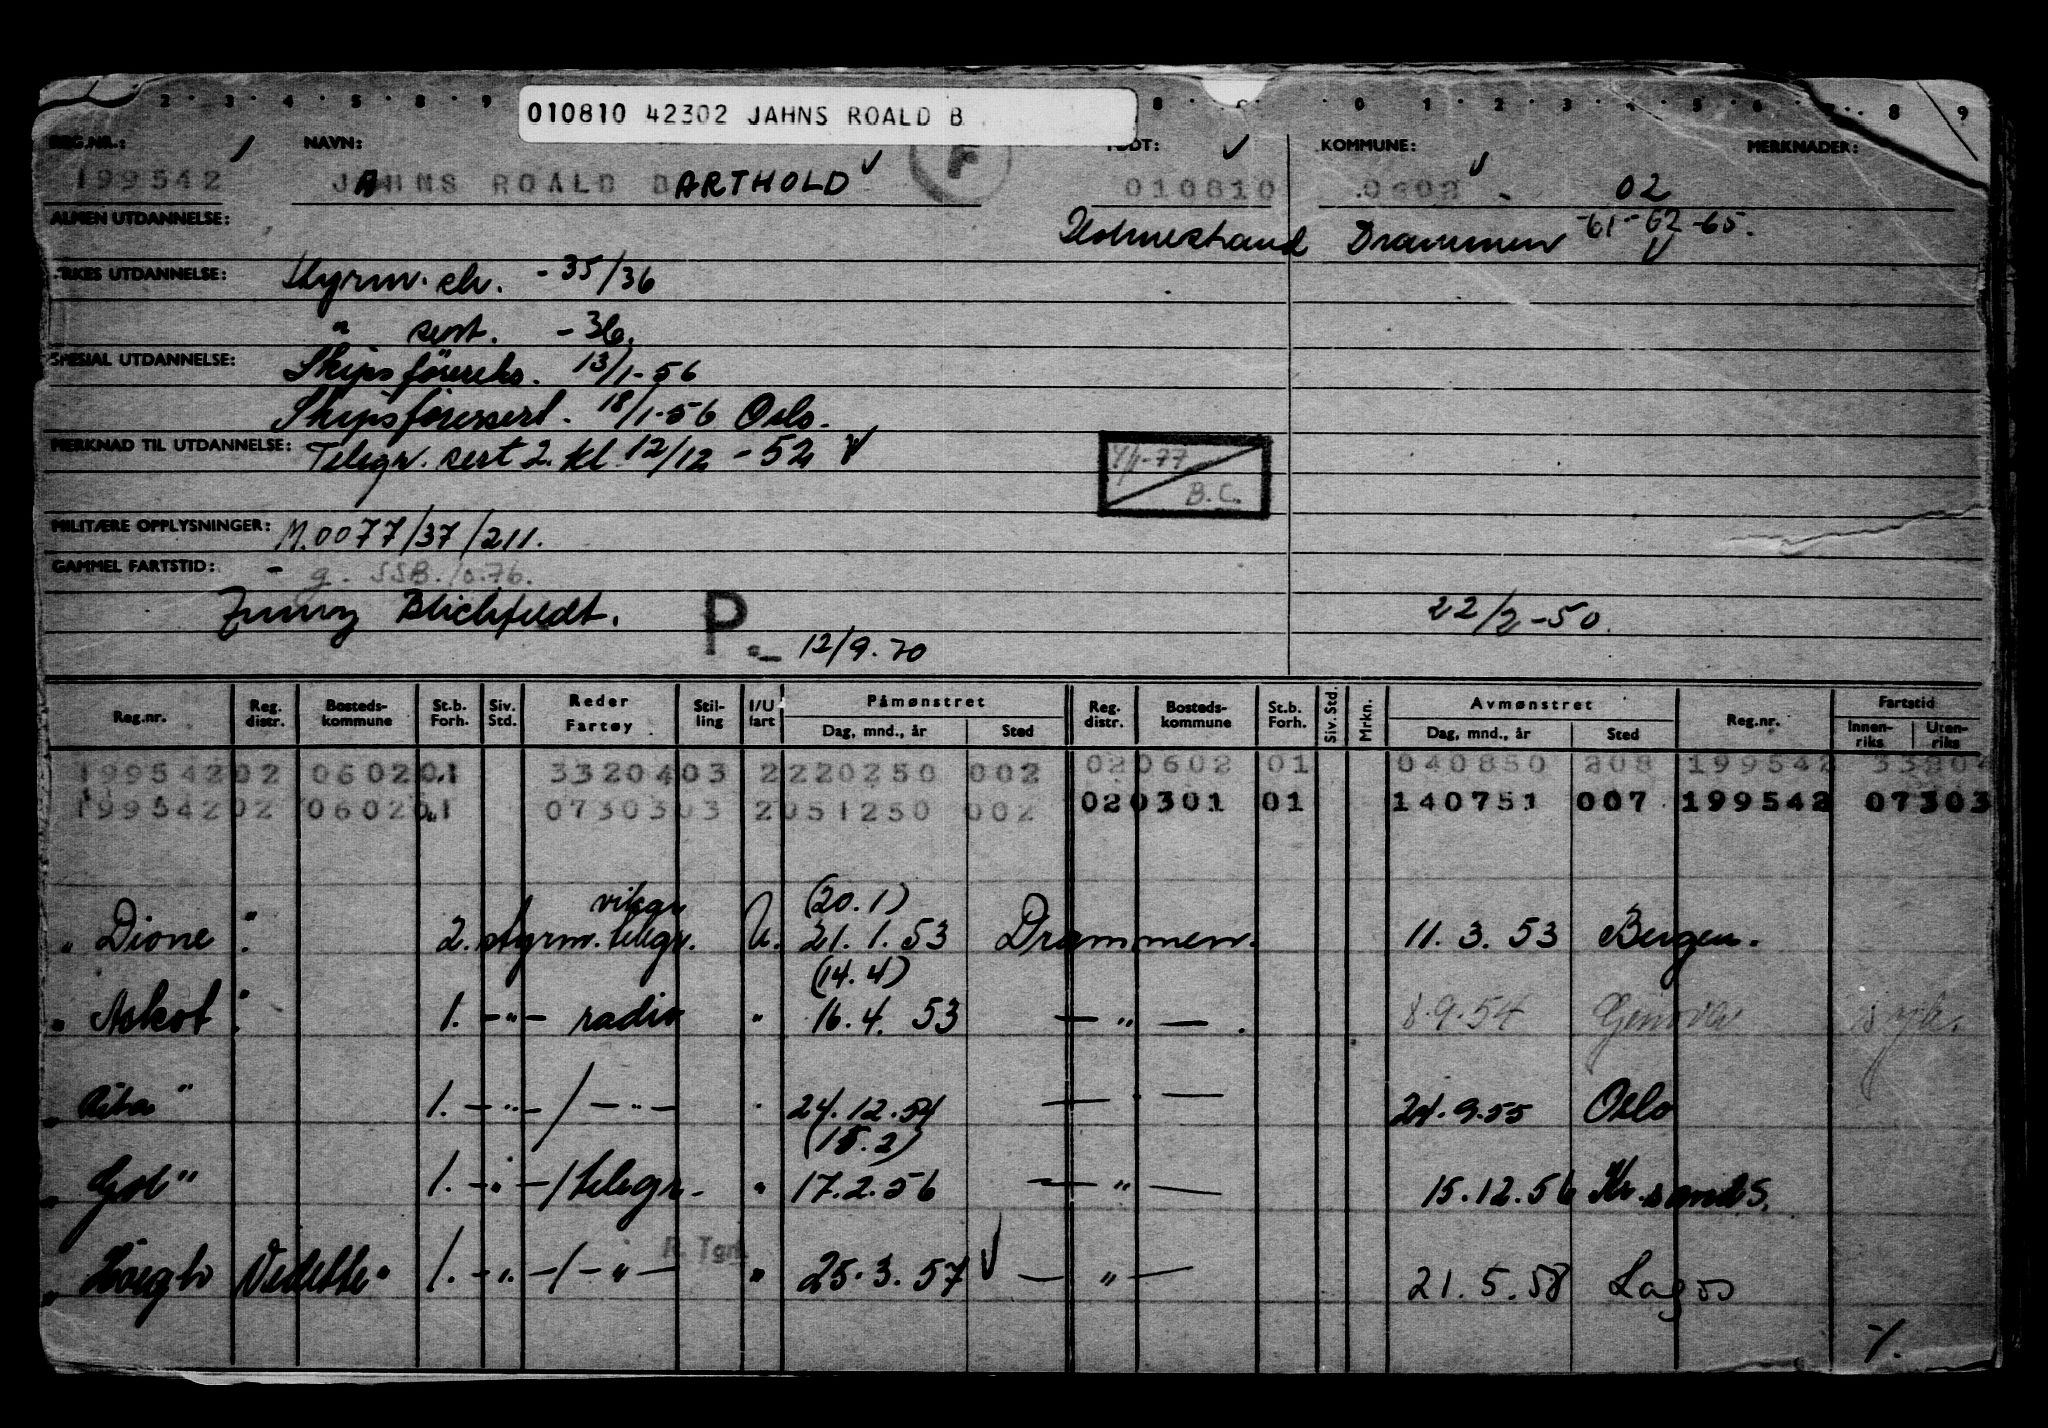 010810 42302 JAHNS ROALD B
REG.NR.: NAVN: FØDT: KOMMUNE: MERKNADER:
199542 JAHNS ROALD BARTHOLD F 010810 0602 02
ALMEN UTDANNELSE: Holmestrand Drammen -61-62-65.
YRKES UTDANNELSE: Styrm. ek. -35/36
" sert. -36.
SPESIAL UTDANNELSE: Skipsförereks. 13/1-56
Skipsförersert. 18/1-56 Oslo.
MERKNAD TIL UTDANNELSE: Telegr. sert 2. kl 12/12-52
4/1-77 B.C.
MILITÆRE OPPLYSNINGER: M.0077/37/211.
GAMMEL FARTSTID: - g. SSB. 10.76.
Blichfeldt. P 22/2-50.
12/9.70
Reg.nr. Reg. distr. Bosteds-kommune St.b. Forh. Siv. Std. Reder Fartøy Stil-ling I/U fart Påmønstret Dag, mnd., år Sted Reg. distr. Bosteds-kommune St.b. Forh. Siv. Std. Mrkn. Avmønstret Dag, mnd., år Sted Reg.nr. Fartstid Innen-riks Uten-riks
199542 02 0602 01 33204 03 2 220250 002 02 0602 01 040850 208 199542 33204
199542 02 0602 01 07303 03 2 051250 002 02 0301 01 140751 007 199542 07303
vikar (20.1)
" Dione " 2. styrm. telegr. U. 21. 1. 53 Drammen. 11. 3. 53 Bergen.
(14.4)
" Askot " 1. -"- radio " 16. 4. 53 -"-. 8.9.54 Genova syk.
" Rita " 1. -"- / -"- " 24.12.54 -"- 24.9.55 Oslo
(15.2)
" Gol " 1. -"- / telegr. " 17.2.56 -"- 15.12.56 Kr.sand S.
R. Tgr.
" Höegh Vedette " 1. -"- / -"- " 25.3.57 -"- 21.5.58 Lagos
-/.